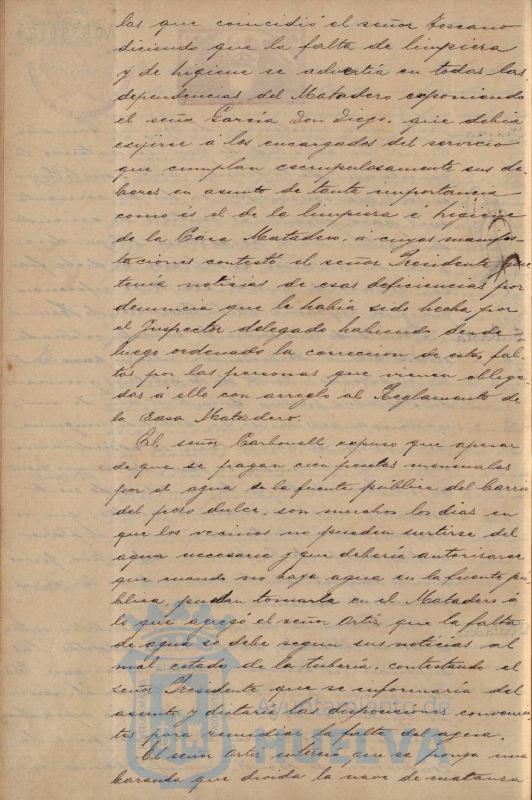 las que coincidió el señor Toscano
diciendo que la falta de limpieza
y de higiene se advertía en todas las
dependencias del Matadero exponiendo
el señor García Don Diego, que debía
exijirse á los encargados del servicio
que cumplan escrupulosamente sus de-
beres en asunto de tanta importancia
como es el de la limpieza é higiene
de la Casa Matadero, á cuyas manifes
taciones contestó el señor Presidente que
tenía noticias de esas deficiencias por
denuncia que le había sido hecha por
el Inspector delegado habiendo desde
luego ordenado la correccion de estas fal-
tas por las personas que vienen obliga
das á ello con arreglo al Reglamento de
la Casa Matadero.
El señor Carbonell expuso que apesar
de que se pagan cien pesetas mensuales
por el agua de la fuente pública del barrio
del pozo dulce, son muchos los dias en
que los vecinos no pueden surtirse del
agua necesaria y que debería autorizarse
que cuando no haya agua en la fuente pú
blica puedan tomarla en el Matadero á
lo que agregó el señor Ortiz que la falta
de agua se debe segun sus noticias al
mal estado de la tubería, contestando el
señor Presidente que se informaría del
asunto y dictaría las disposiciones convenien
tes para remediar la falta del agua.
El señor Ortiz interesa que se ponga una
baranda que divida la nave de matanza
Ayuntamiento de
HUELVA